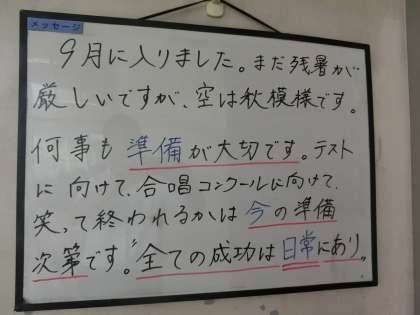 メッセージ
9月に入りました。まだ残暑が
厳しいですが、空は秋模様です。
何事も準備が大切です。テスト
に向けて、合唱コンクールに向けて、
笑って終われるかは今の準備
次第です。“全ての成功は日常にあり„